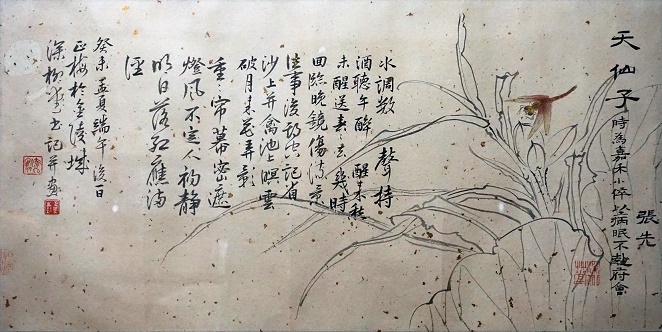 天仙子 時為嘉禾小倅以病眠不赴府會
張先
水調數聲持
酒聽午醉醒來愁
未醒送春々去幾時
回臨晚鏡傷流景
往事後期空記省
沙上并禽池上暝雲
破月來花弄影
重々帘幕密遮
燈風不定人初靜
明日落紅應滿
徑
癸未孟夏端午後一日
正梅於金陵城
深柳堂書記并畫